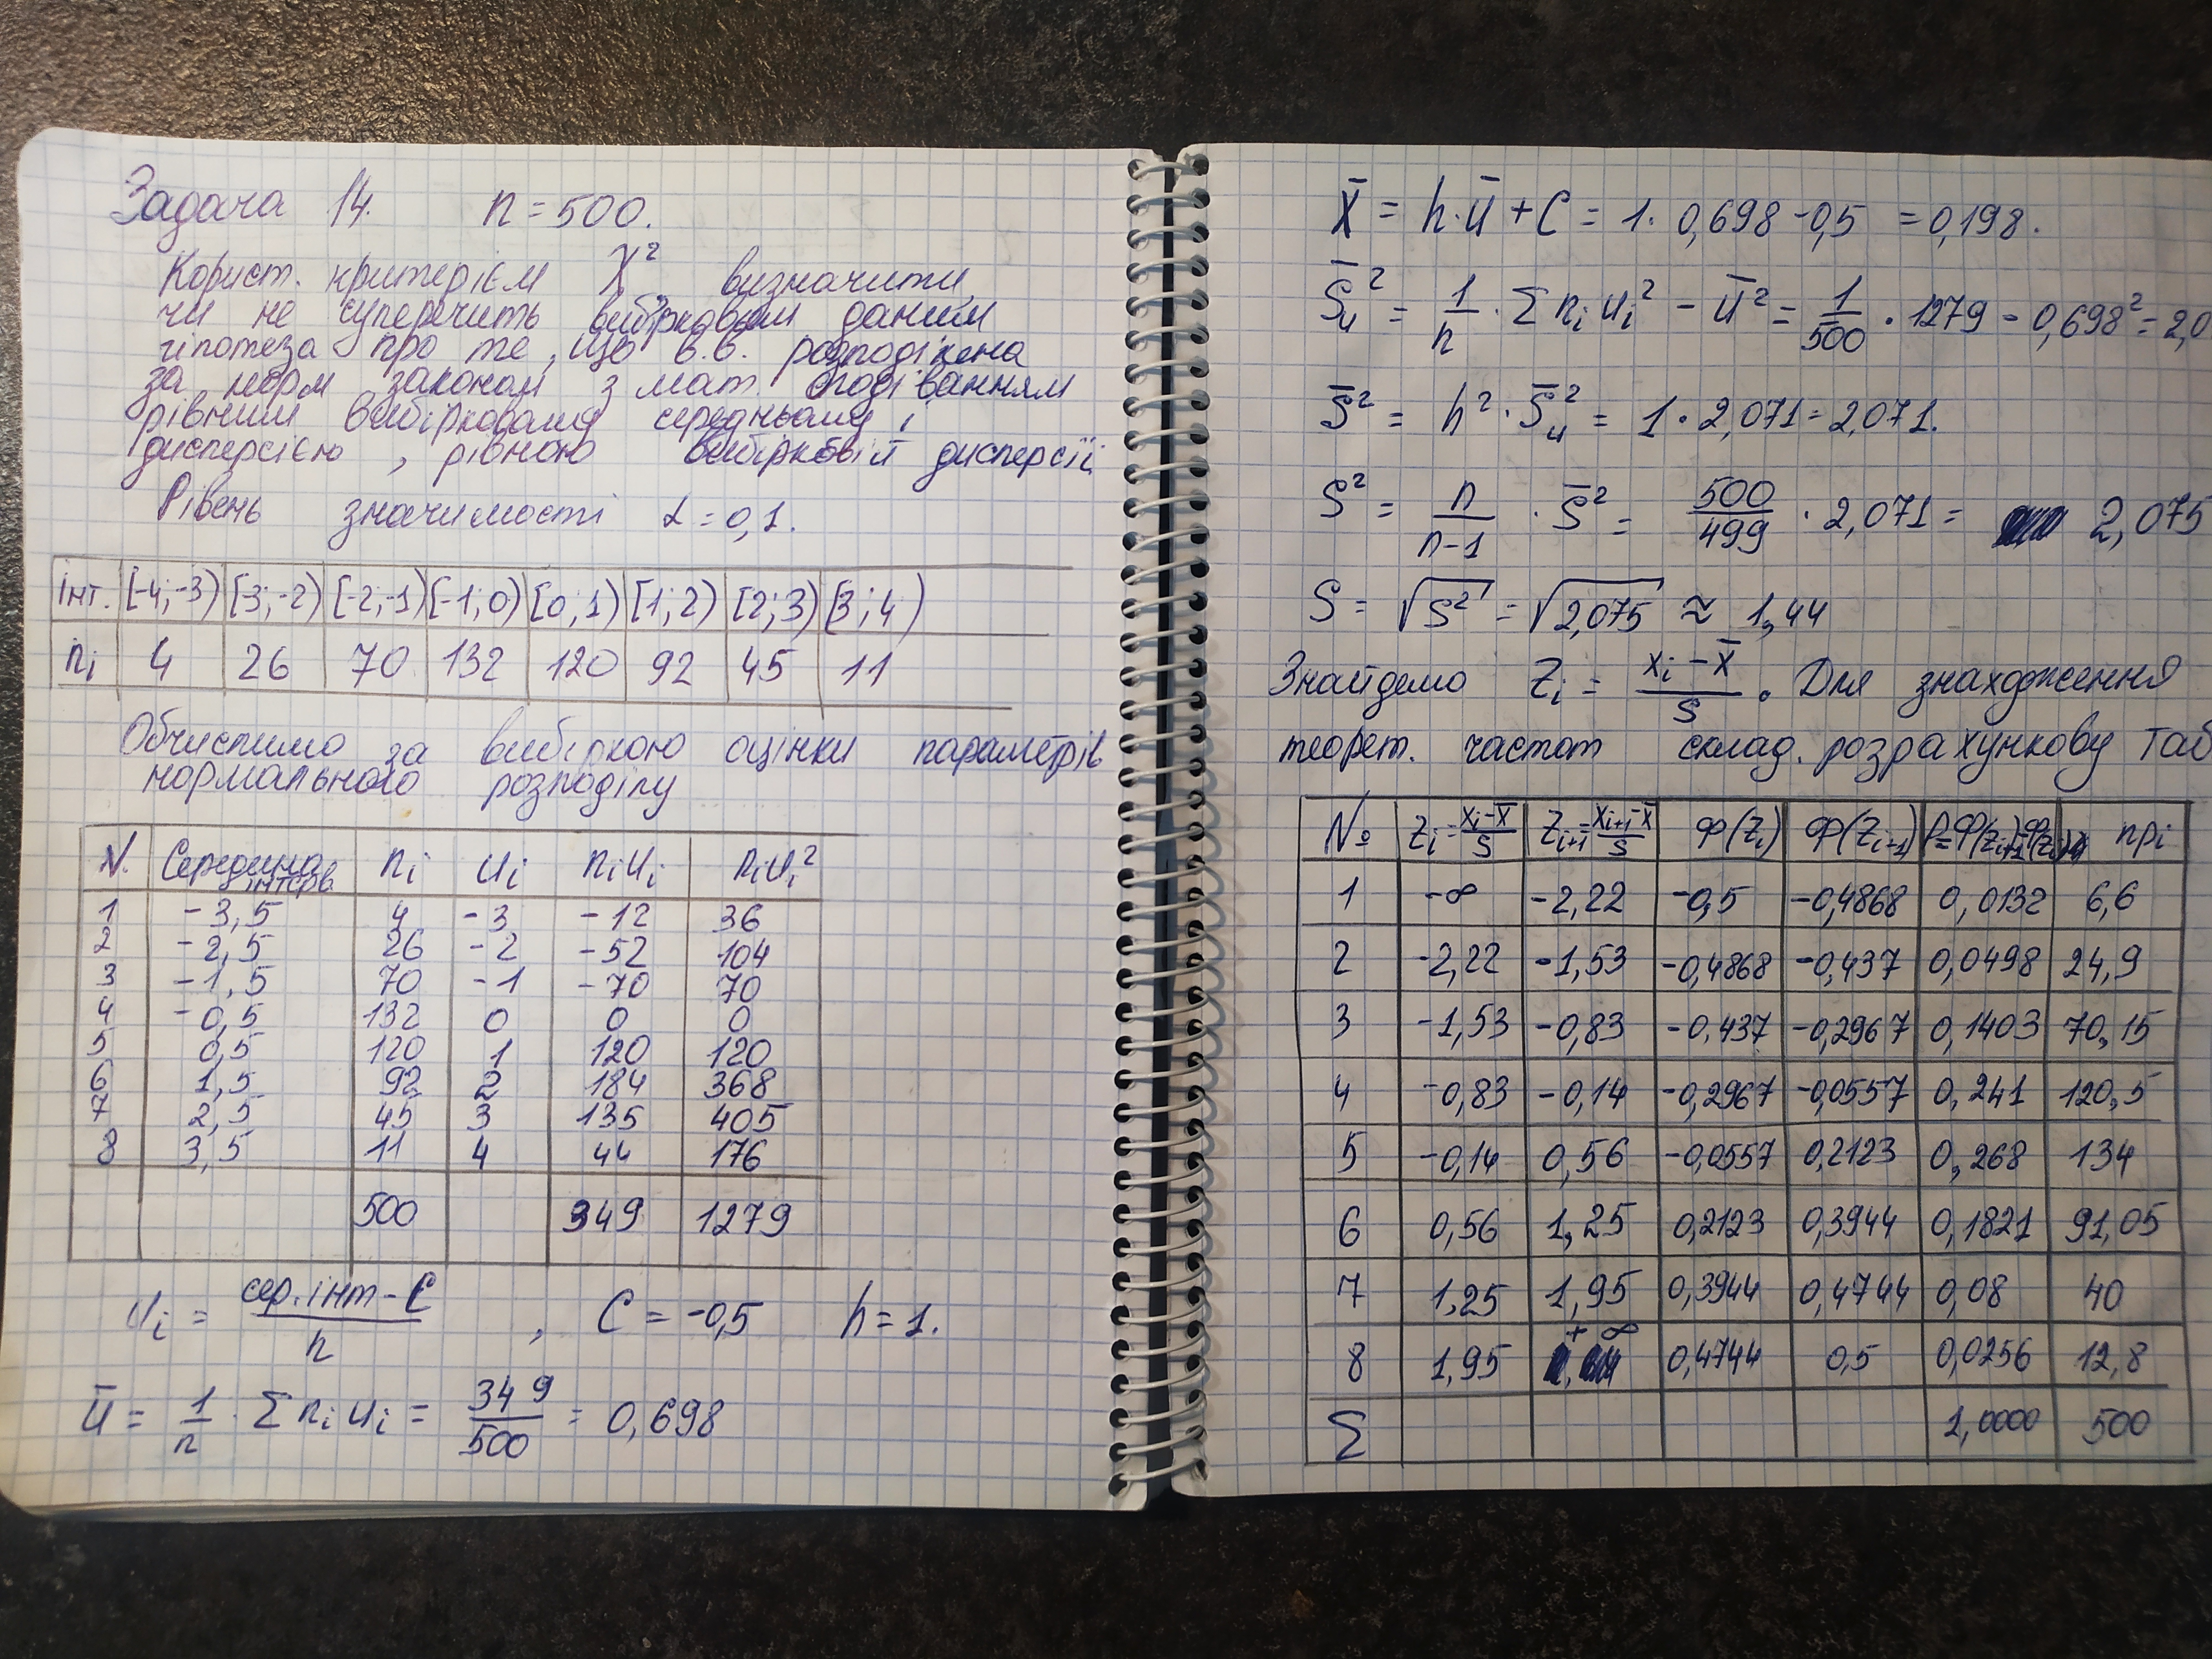 Задача 14. n = 500.
Корист. критерієм χ² визначити,
чи не суперечить вибірковим даним
гіпотеза про те, що в.в. розподілена
за норм законом з мат. сподіванням
рівним вибірковому середньому і
дисперсією, рівною вибірковій дисперсії
Рівень значимості α = 0,1.
інт. [-4;-3) [-3;-2) [-2;-1) [-1;0) [0;1) [1;2) [2;3) [3;4)
ni 4 26 70 132 120 92 45 11
Обчислимо за вибіркою оцінки параметрів
нормального розподілу
N. Середина інтерв. ni ui niui niui²
1 -3,5 4 -3 -12 36
2 -2,5 26 -2 -52 104
3 -1,5 70 -1 -70 70
4 -0,5 132 0 0 0
5 0,5 120 1 120 120
6 1,5 92 2 184 368
7 2,5 45 3 135 405
8 3,5 11 4 44 176
500 349 1279
ui = (сер.інт - C)/h , C = -0,5 h = 1.
ū = 1/n · Σ ni ui = 349/500 = 0,698
X̄ = h·ū + C = 1 · 0,698 - 0,5 = 0,198.
S̄u² = 1/n · Σ ni ui² - ū² = 1/500 · 1279 - 0,698² = 2,0
S̄² = h² · S̄u² = 1 · 2,071 = 2,071.
S² = n/(n-1) · S̄² = 500/499 · 2,071 = 2,075
S = √S² = √2,075 ≈ 1,44
Знайдемо Zi = (xi - x̄)/s. Для знаходження
теорет. частот склад. розрахункову таб
№ Zi = (xi-x̄)/s Zi+1 = (xi+1-x̄)/s Ф(Zi) Ф(Zi+1) Pi=Ф(Zi+1)-Ф(Zi) npi
1 -∞ -2,22 -0,5 -0,4868 0,0132 6,6
2 -2,22 -1,53 -0,4868 -0,437 0,0498 24,9
3 -1,53 -0,83 -0,437 -0,2967 0,1403 70,15
4 -0,83 -0,14 -0,2967 -0,0557 0,241 120,5
5 -0,14 0,56 -0,0557 0,2123 0,268 134
6 0,56 1,25 0,2123 0,3944 0,1821 91,05
7 1,25 1,95 0,3944 0,4744 0,08 40
8 1,95 +∞ 0,4744 0,5 0,0256 12,8
Σ 1,0000 500